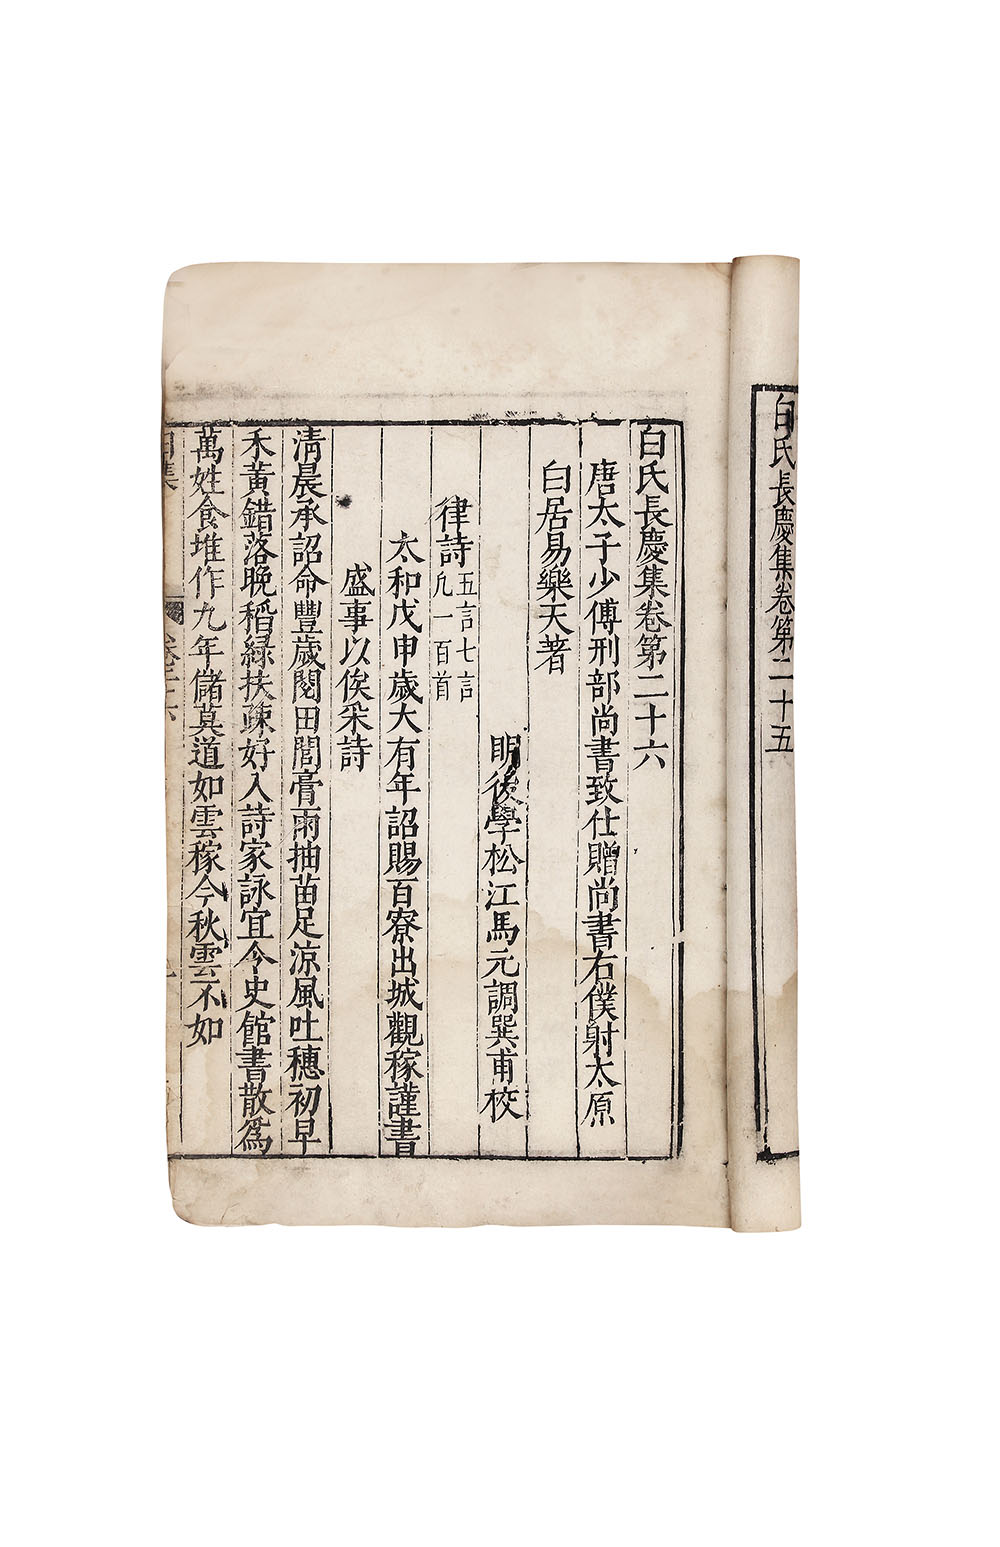 白氏長慶集卷第二十五
白氏長慶集卷第二十六
唐太子少傅刑部尚書致仕贈尚書右僕射太原
白居易樂天著
明後學松江馬元調巽甫校
律詩五言七言凡一百首
太和戊申歲大有年詔賜百寮出城觀稼謹書
盛事以俟采詩
清晨承詔命豐歲閱田閭膏雨抽苗足涼風吐穗初早
禾黃錯落晚稻緑扶疎好入詩家詠宜令史館書散爲
萬姓食堆作九年儲莫道如雲稼今秋雲不如